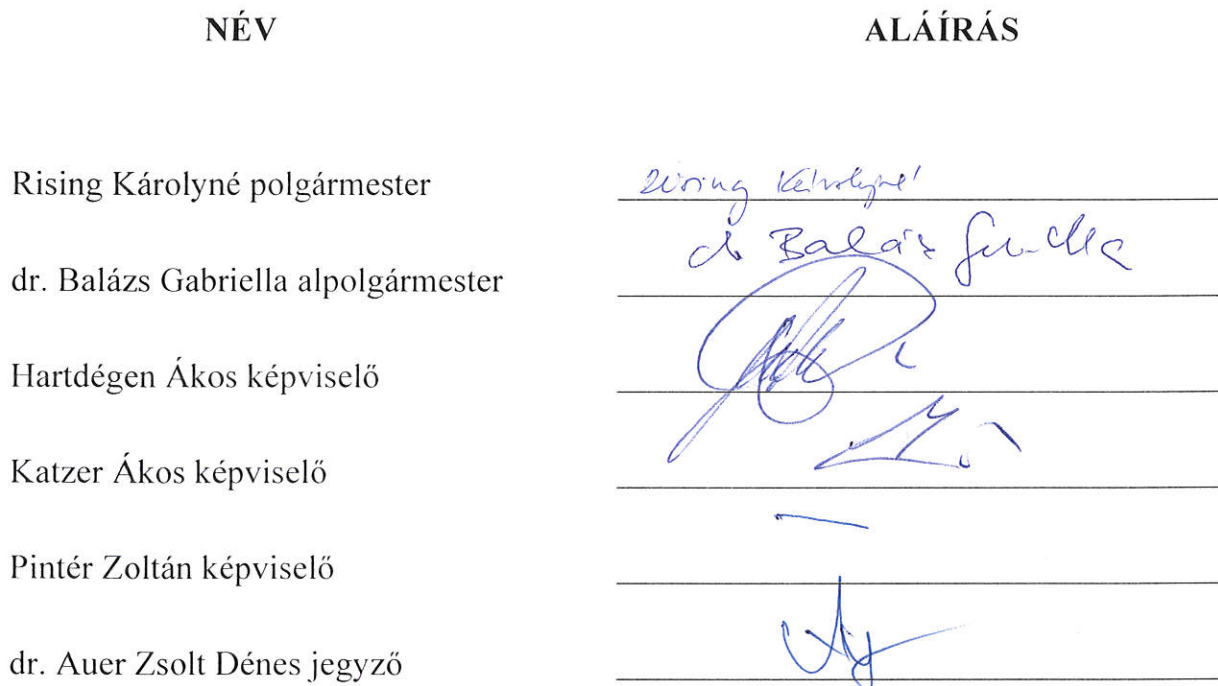 NÉV ALÁÍRÁS
Rising Károlyné polgármester Rising Károlyné
dr. Balázs Gabriella alpolgármester dr Balázs
Hartdégen Ákos képviselő
Katzer Ákos képviselő
Pintér Zoltán képviselő —
dr. Auer Zsolt Dénes jegyző